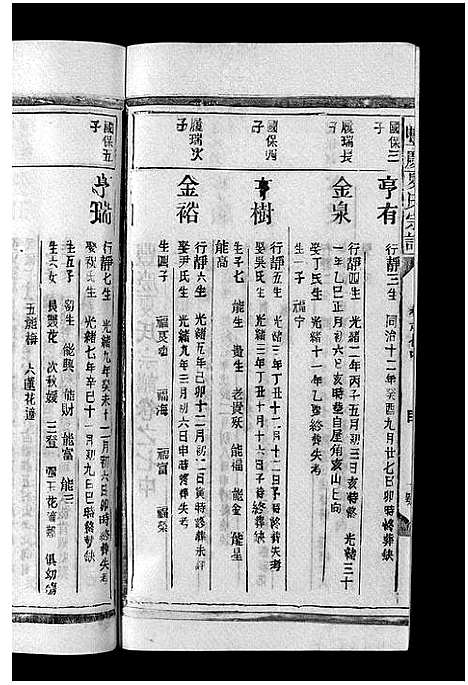 國保三子
亨有
行靜三 生 同治十二年癸酉九月廿七巳卯時 終葬缺
履瑞長子
金泉
行靜四 生 光緒二年丙子五月初三日亥時 終 光緒三十
一年乙巳正月初六日亥時葬自屋角亥山巳向
娶丁氏 生 光緒十一年乙 終葬失考
生一子 福宁
國保四子
亨樹
行靜五 生 光緒三年丁丑十一月十二日子時 終葬缺
娶吳氏 生 光緒三年丁丑十月十六日子時 終葬缺
生子七 能生 貴生 老貴 能龍 能金 能星
能高
履瑞次子
金裕
行靜六 生 光緒五年己卯十二月初二日寅時 終葬失詳
娶尹氏 生 光緒九年三月初六日申時 終葬失考
生四子 福海 福榮
國保五子
亨瑞
行靜七 生 光緒九年癸未十一月初六日卯時 終葬失考
娶 氏 生 光緒七年辛巳十一月初九日巳時 終缺
生五子 初生 能興 能財 能富 能三
生六女 長 花 次秋 三登 四玉花 俱幼
五能梅 六蓮花